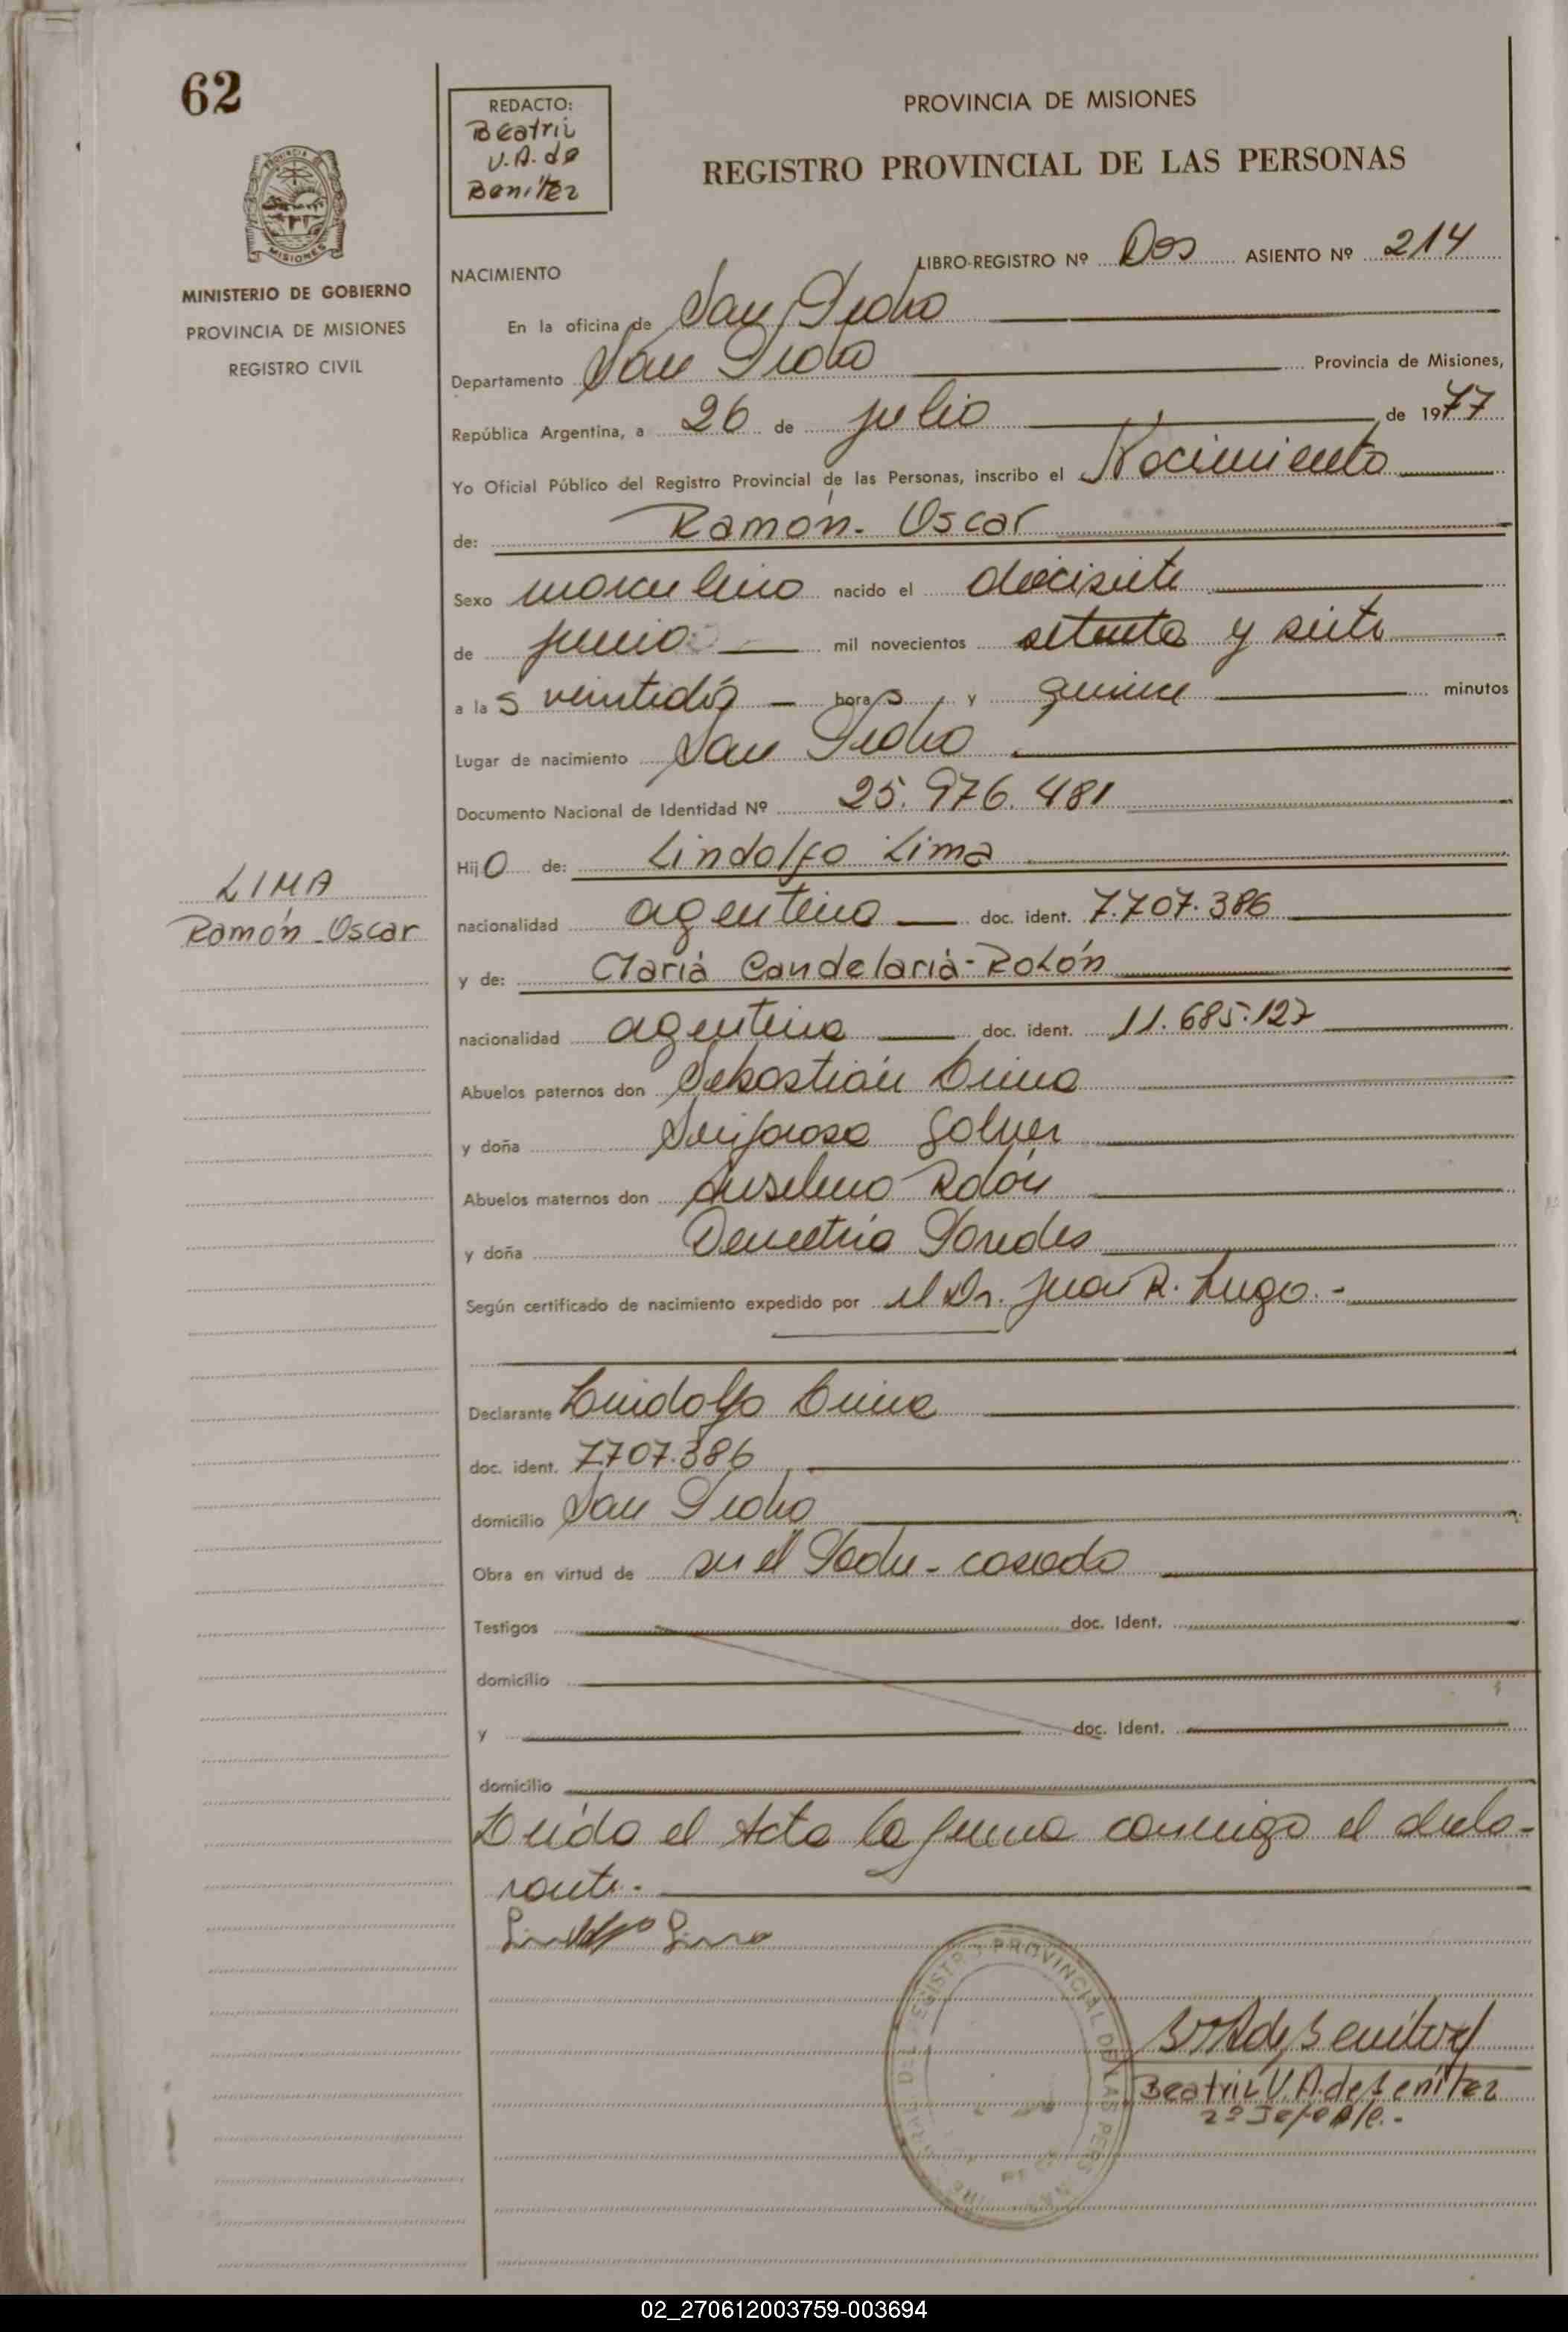 62
PROVINCIA DE MISIONES
MINISTERIO DE GOBIERNO
PROVINCIA DE MISIONES
REGISTRO CIVIL
LIMA
Ramón-Oscar
REDACTO:
Beatriz
V.A. de
Benítez
PROVINCIA DE MISIONES
REGISTRO PROVINCIAL DE LAS PERSONAS
LIBRO-REGISTRO Nº Dos ASIENTO Nº 214
NACIMIENTO
En la oficina de San Pedro
Departamento San Pedro Provincia de Misiones,
República Argentina, a 26 de julio de 1977
Yo Oficial Público del Registro Provincial de las Personas, inscribo el Nacimiento
de: Ramón-Oscar
Sexo masculino nacido el diecisiete
de junio mil novecientos setenta y siete
a las veintidós horas y quince minutos
Lugar de nacimiento San Pedro
Documento Nacional de Identidad Nº 25.976.481
Hijo de: Lindolfo Lima
nacionalidad agentino doc. ident. 7.707.386
y de: María Candelaria-Rolón
nacionalidad agentina doc. ident. 11.685.127
Abuelos paternos don Sebastián Lima
y doña Sinforosa
Abuelos maternos don Anselmo Rolón
y doña Demetria Paredes
Según certificado de nacimiento expedido por el Dr. Juan R. Lugo.-
Declarante Lindolfo Lima
doc. ident. 7.707.386
domicilio San Pedro
Obra en virtud de ser el Padre-casado
Testigos doc. Ident.
domicilio
y doc. Ident.
domicilio
Leída el Acta la firma conmigo el decla-
rante.-
Lindolfo Lima
REGISTRO PROVINCIAL DE LAS PERSONAS
Beatriz V.A. de Benítez
2º Jefe
02_270612003759-003694